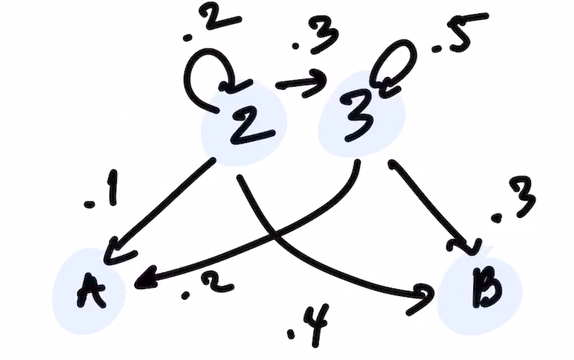 .2 .3 .5
2 3
.1 .3
A B
.2
.4